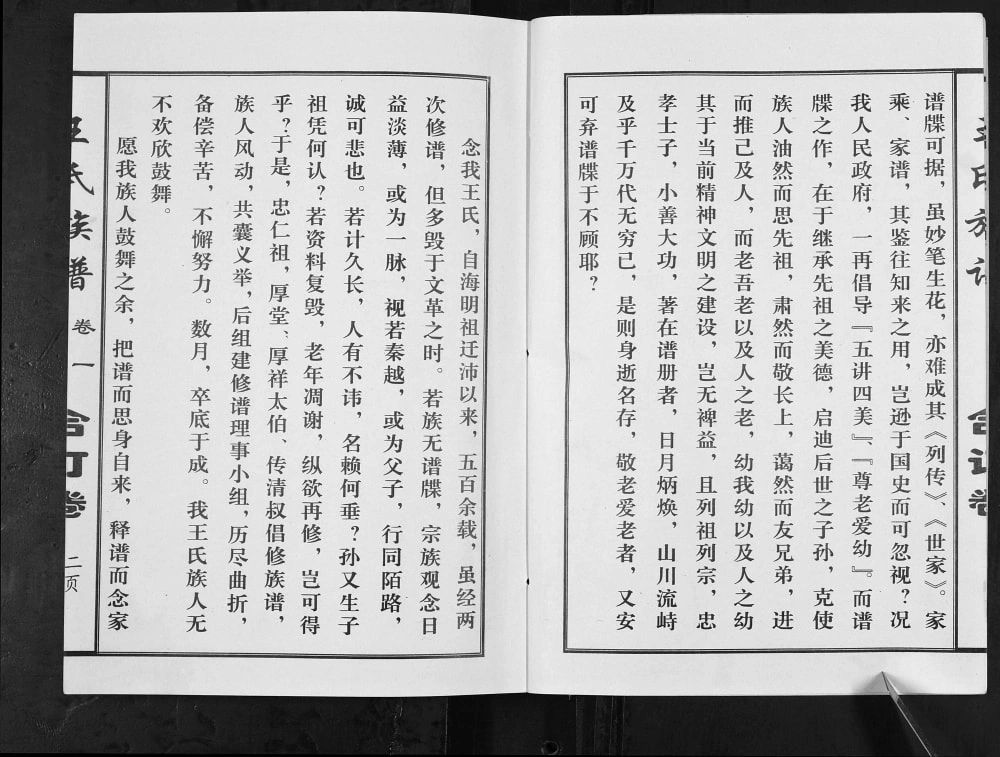 谱牒可据，虽妙笔生花，亦难成其《列传》、《世家》。家
乘、家谱，其鉴往知来之用，岂逊于国史而可忽视？况
我人民政府，一再倡导『五讲四美』、『尊老爱幼』。而谱
牒之作，在于继承先祖之美德，启迪后世之子孙，克使
族人油然而思先祖，肃然而敬长上，蔼然而友兄弟，进
而推己及人，而老吾老以及人之老，幼我幼以及人之幼
其于当前精神文明之建设，岂无裨益，且列祖列宗，忠
孝士子，小善大功，著在谱册者，日月炳焕，山川流峙
及乎千万代无穷己，是则身逝名存，敬老爱老者，又安
可弃谱牒于不顾耶？
念我王氏，自海明祖迁沛以来，五百余载，虽经两
次修谱，但多毁于文革之时。若族无谱牒，宗族观念日
益淡薄，或为一脉，视若秦越，或为父子，行同陌路，
诚可悲也。若计久长，人有不讳，名赖何垂？孙又生子
祖凭何认？若资料复毁，老年凋谢，纵欲再修，岂可得
乎？于是，忠仁祖，厚堂、厚祥太伯、传清叔倡修族谱，
族人风动，共囊义举，后组建修谱理事小组，历尽曲折，
备偿辛苦，不懈努力。数月，卒底于成。我王氏族人无
不欢欣鼓舞。
愿我族人鼓舞之余，把谱而思身自来，释谱而念家
王氏族谱
卷一
合订卷
二页